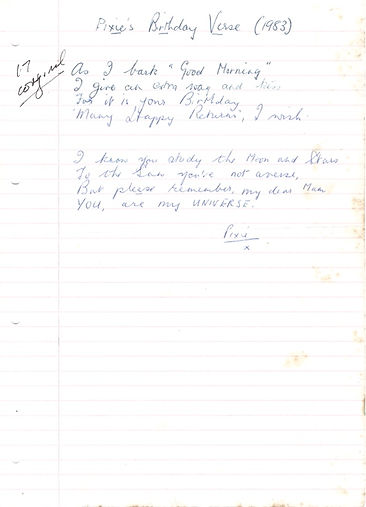 Pixie's Birthday Verse (1983)
17
original
As I bark "Good Morning"
I give an extra wag and
For it is your Birthday
Many Happy Returns, I wish.
I know you study the Moon and Stars
To the Sun you're not averse,
But please remember, my dear Mum
YOU, are my UNIVERSE.
Pixie
x